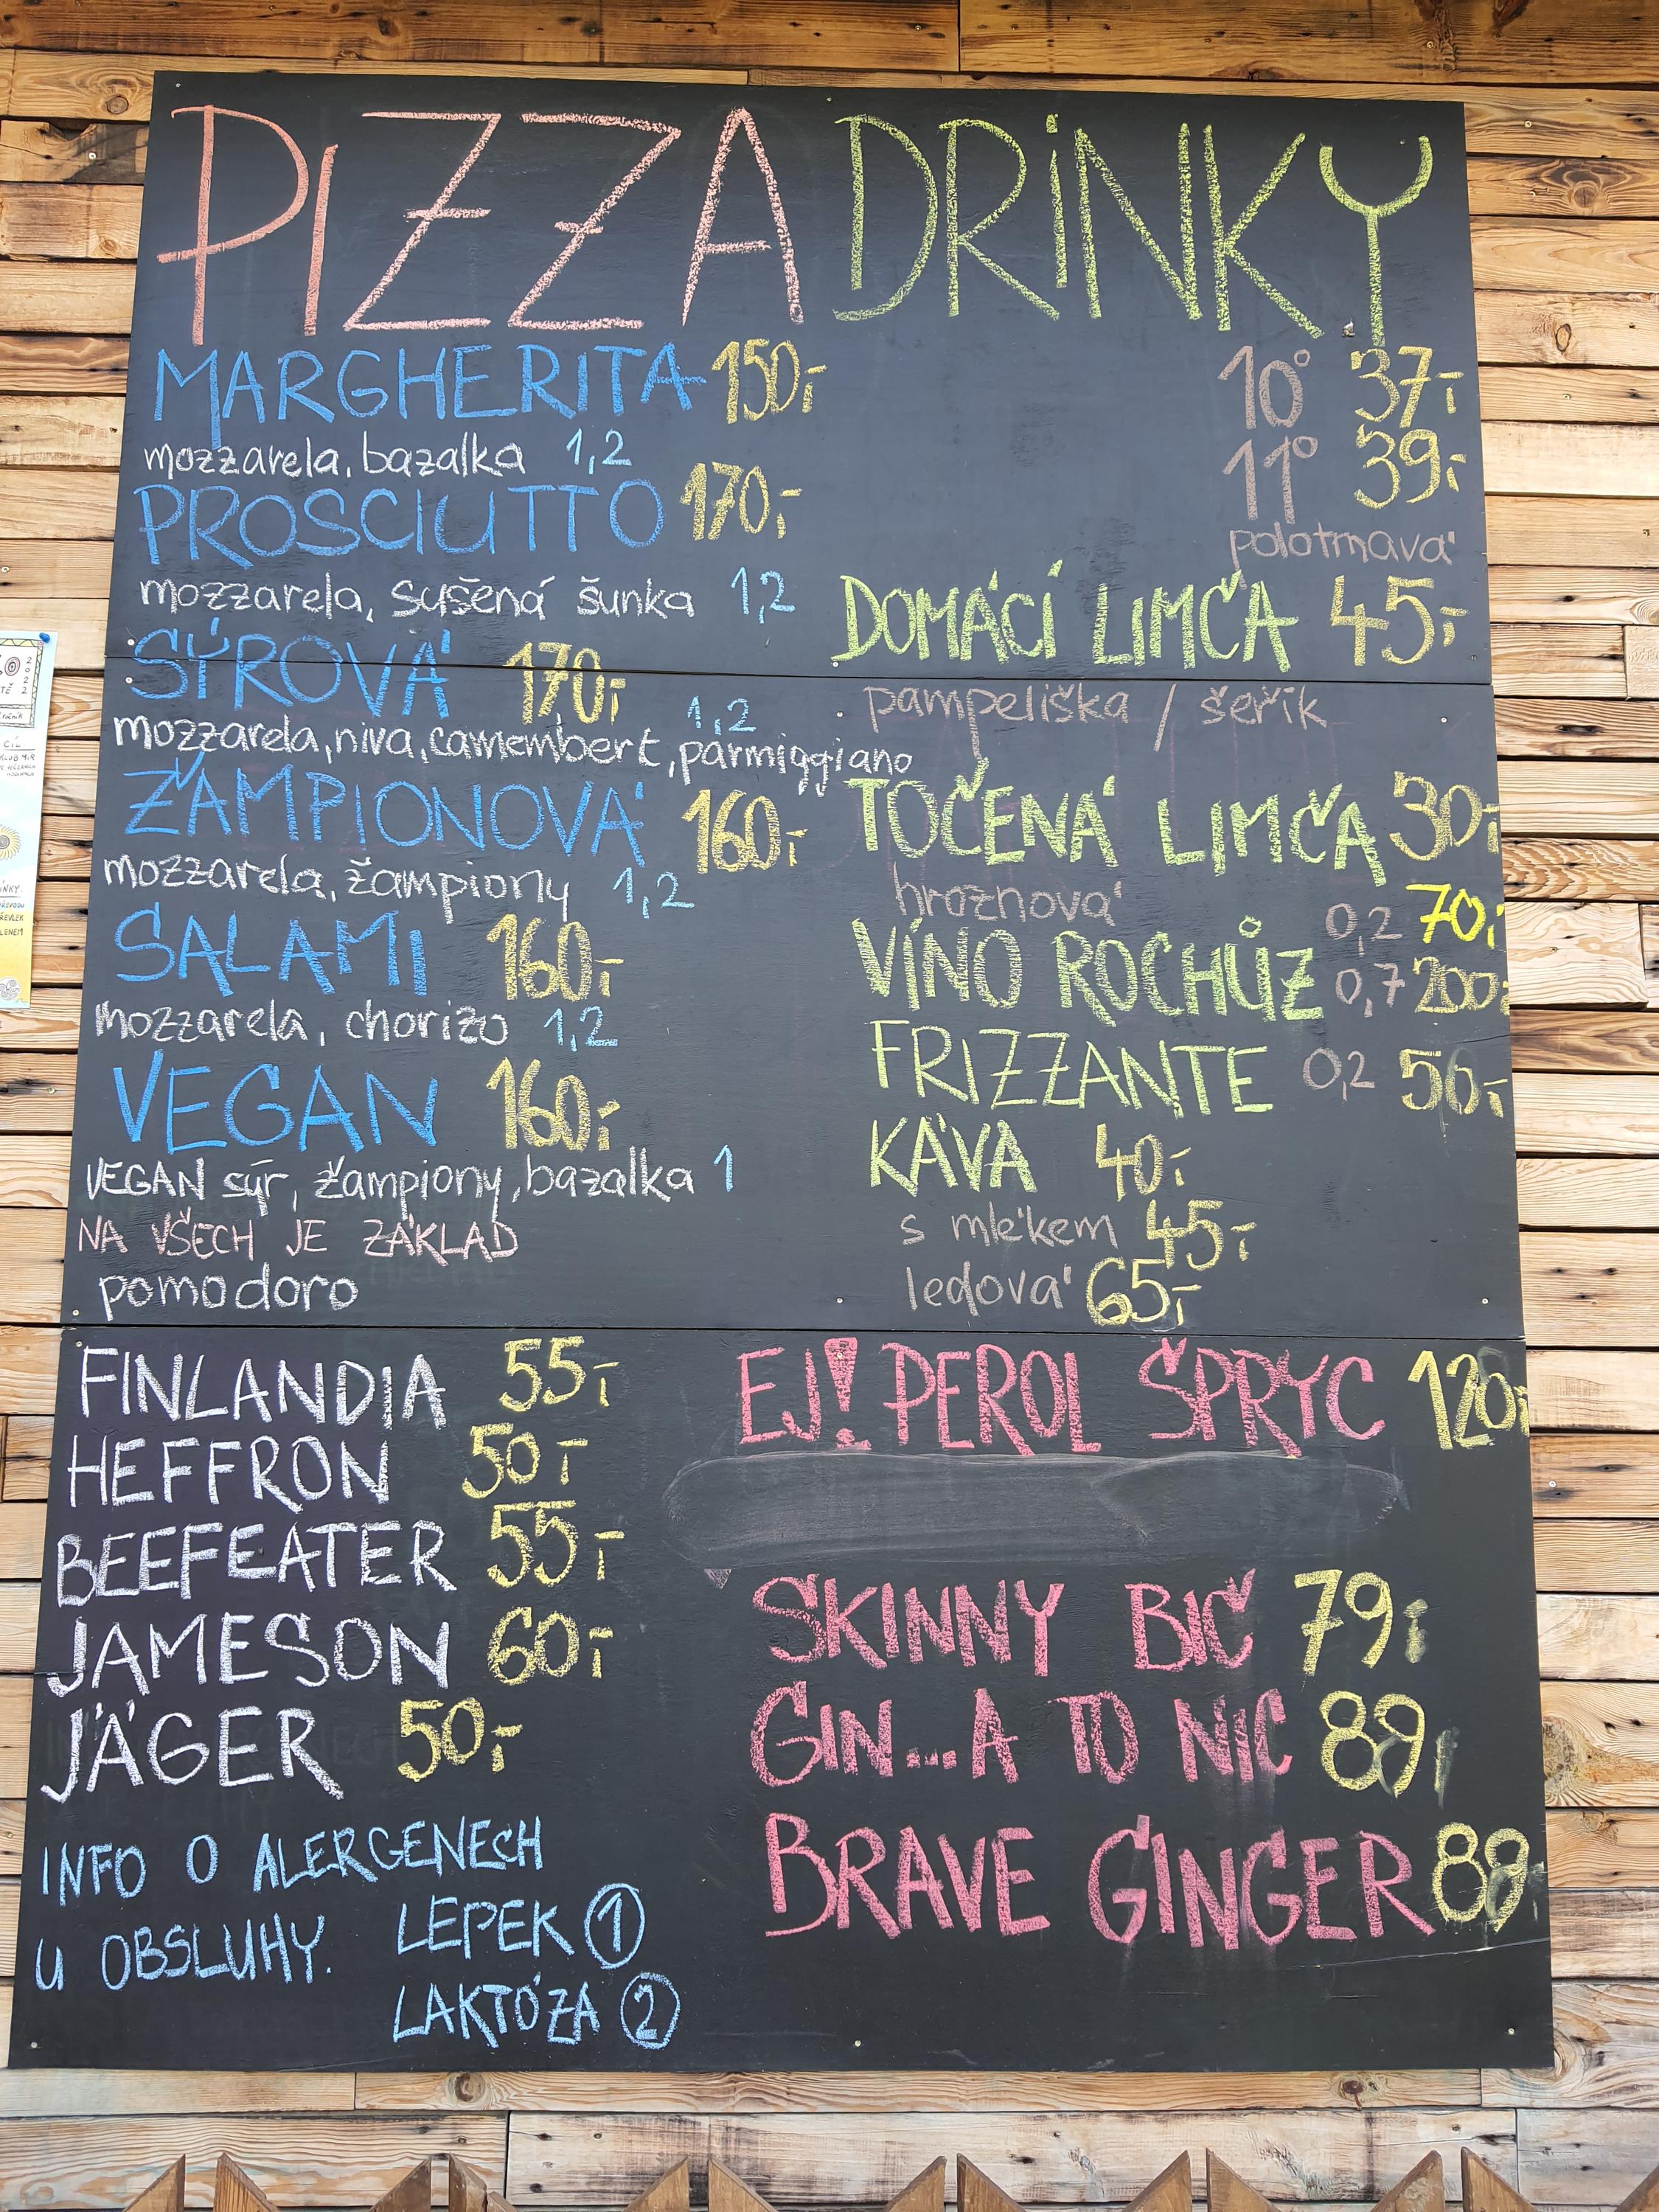 PIZZA
MARGHERITA 150,-
mozzarela, bazalka 1,2
PROSCIUTTO 170,-
mozzarela, sušená šunka 1,2
SÝROVÁ 170,-
mozzarela, niva, camembert, parmiggiano 1,2
ŽAMPIONOVÁ 160,-
mozzarela, žampiony 1,2
SALAMI 160,-
mozzarela, chorizo 1,2
VEGAN 160,-
VEGAN sýr, žampiony, bazalka 1
NA VŠECH JE ZÁKLAD
pomodoro
DRINKY
10° 37,-
11° 39,-
polotmavá
DOMÁCÍ LIMČA 45,-
pampeliška / šeřík
TOČENÁ LIMČA 30,-
hroznová
VÍNO ROCHŮZ 0,2 70,-
0,7 200,-
FRIZZANTE 0,2 50,-
KÁVA 40,-
s mlékem 45,-
ledová 65,-
FINLANDIA 55,-
HEFFRON 50,-
BEEFEATER 55,-
JAMESON 60,-
JÄGER 50,-
INFO O ALERGENECH
U OBSLUHY.
LEPEK 1
LAKTÓZA 2
EJ! PEROL ŠPRYC 120,-
SKINNY BIČ 79,-
GIN...A TO NIC 89,-
BRAVE GINGER 89,-